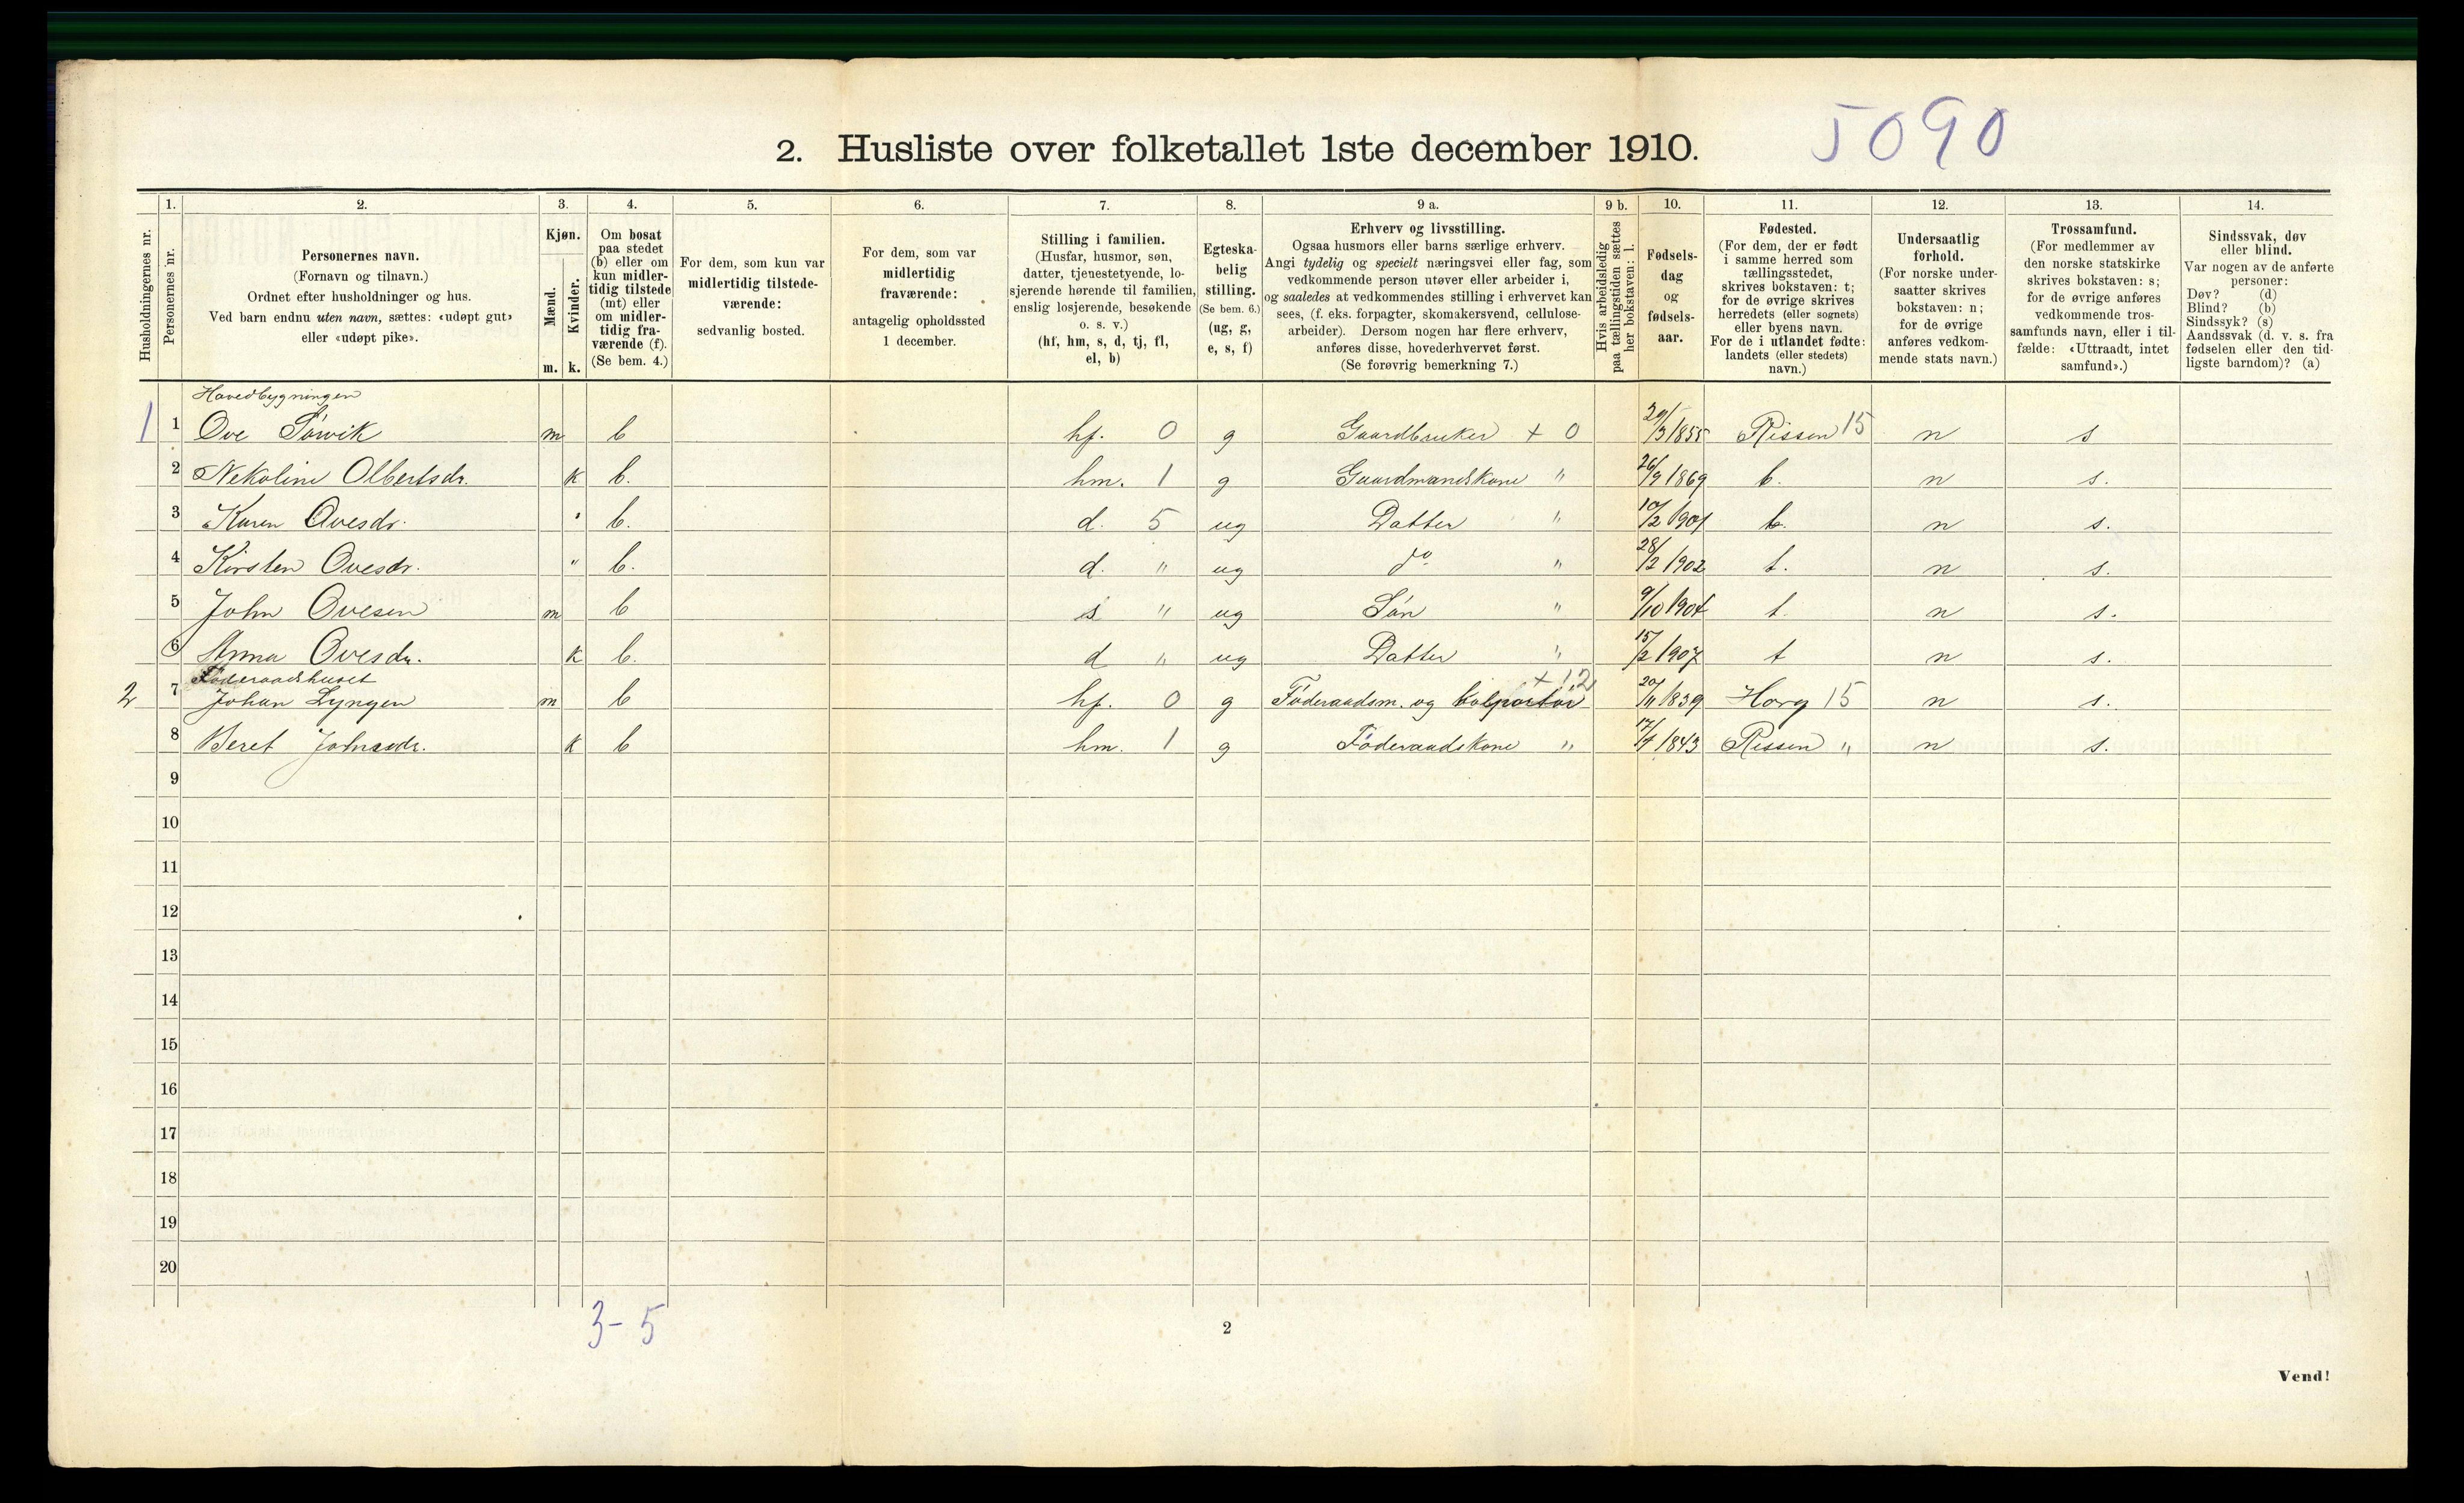 5090
2. Husliste over folketallet 1ste december 1910.
Husholdningernes nr.
1.
Personernes nr.
2.
Personernes navn.
(Fornavn og tilnavn.)
Ordnet efter husholdninger og hus.
Ved barn endnu uten navn, sættes: «udøpt gut»
eller «udøpt pike».
3.
Kjøn.
Mænd.
Kvinder.
m. k.
4.
Om bosat
paa stedet
(b) eller om
kun midler-
tidig tilstede
(mt) eller
om midler-
tidig fra-
værende (f).
(Se bem. 4.)
5.
For dem, som kun var
midlertidig tilstede-
værende:
sedvanlig bosted.
6.
For dem, som var
midlertidig
fraværende:
antagelig opholdssted
1 december.
7.
Stilling i familien.
(Husfar, husmor, søn,
datter, tjenestetyende, lo-
sjerende hørende til familien,
enslig losjerende, besøkende
o. s. v.)
(hf, hm, s, d, tj, fl,
el, b)
8.
Egteska-
belig
stilling.
(Se bem. 6.)
(ug, g,
e, s, f)
9 a.
Erhverv og livsstilling.
Ogsaa husmors eller barns særlige erhverv.
Angi tydelig og specielt næringsvei eller fag, som
vedkommende person utøver eller arbeider i,
og saaledes at vedkommendes stilling i erhvervet kan
sees, (f. eks. forpagter, skomakersvend, cellulose-
arbeider). Dersom nogen har flere erhverv,
anføres disse, hovederhvervet først.
(Se forøvrig bemerkning 7.)
9 b.
Hvis arbeidsledig
paa tællingstiden sættes
her bokstaven: l.
10.
Fødsels-
dag
og
fødsels-
aar.
11.
Fødested.
(For dem, der er født
i samme herred som
tællingsstedet,
skrives bokstaven: t;
for de øvrige skrives
herredets (eller sognets)
eller byens navn.
For de i utlandet fødte:
landets (eller stedets)
navn.)
12.
Undersaatlig
forhold.
(For norske under-
saatter skrives
bokstaven: n;
for de øvrige
anføres vedkom-
mende stats navn.)
13.
Trossamfund.
(For medlemmer av
den norske statskirke
skrives bokstaven: s;
for de øvrige anføres
vedkommende tros-
samfunds navn, eller i til-
fælde: «Uttraadt, intet
samfund».)
14.
Sindssvak, døv
eller blind.
Var nogen av de anførte
personer:
Døv? (d)
Blind? (b)
Sindssyk? (s)
Aandssvak (d. v. s. fra
fødselen eller den tid-
ligste barndom)? (a)
Hovedbygningen
1 1 Ove Sørvik m b hf. 0 g Gaardbruker + 0 29/3 1855 Rissen 15 n s
2 Nekoline Olbertsdr. k b. hm. 1 g Gaardmandskone " 26/9 1869 t. n s.
3 Karen Ovesdr. " b. d. 5 ug Datter " 10/2 1901 t. n s.
4 Kirsten Ovesdr. " b. d. " ug do " 28/2 1902 t. n s.
5 John Ovesen m b s " ug Søn " 9/10 1904 t. n s.
6 Anna Ovesdr. k b. d " ug Datter " 15/2 1907 t n s.
Føderaadshuset
2 7 Johan Lyngen m b hf. 0 g Føderaadsm. og kolportør + 1,2 20/11 1839 Horg 15 n s.
8 Beret Johnsdr. k b hm. 1 g Føderaadskone " 17/4 1843 Rissen " n s.
9
10
11
12
13
14
15
16
17
18
19
20
3-5
2
Vend!